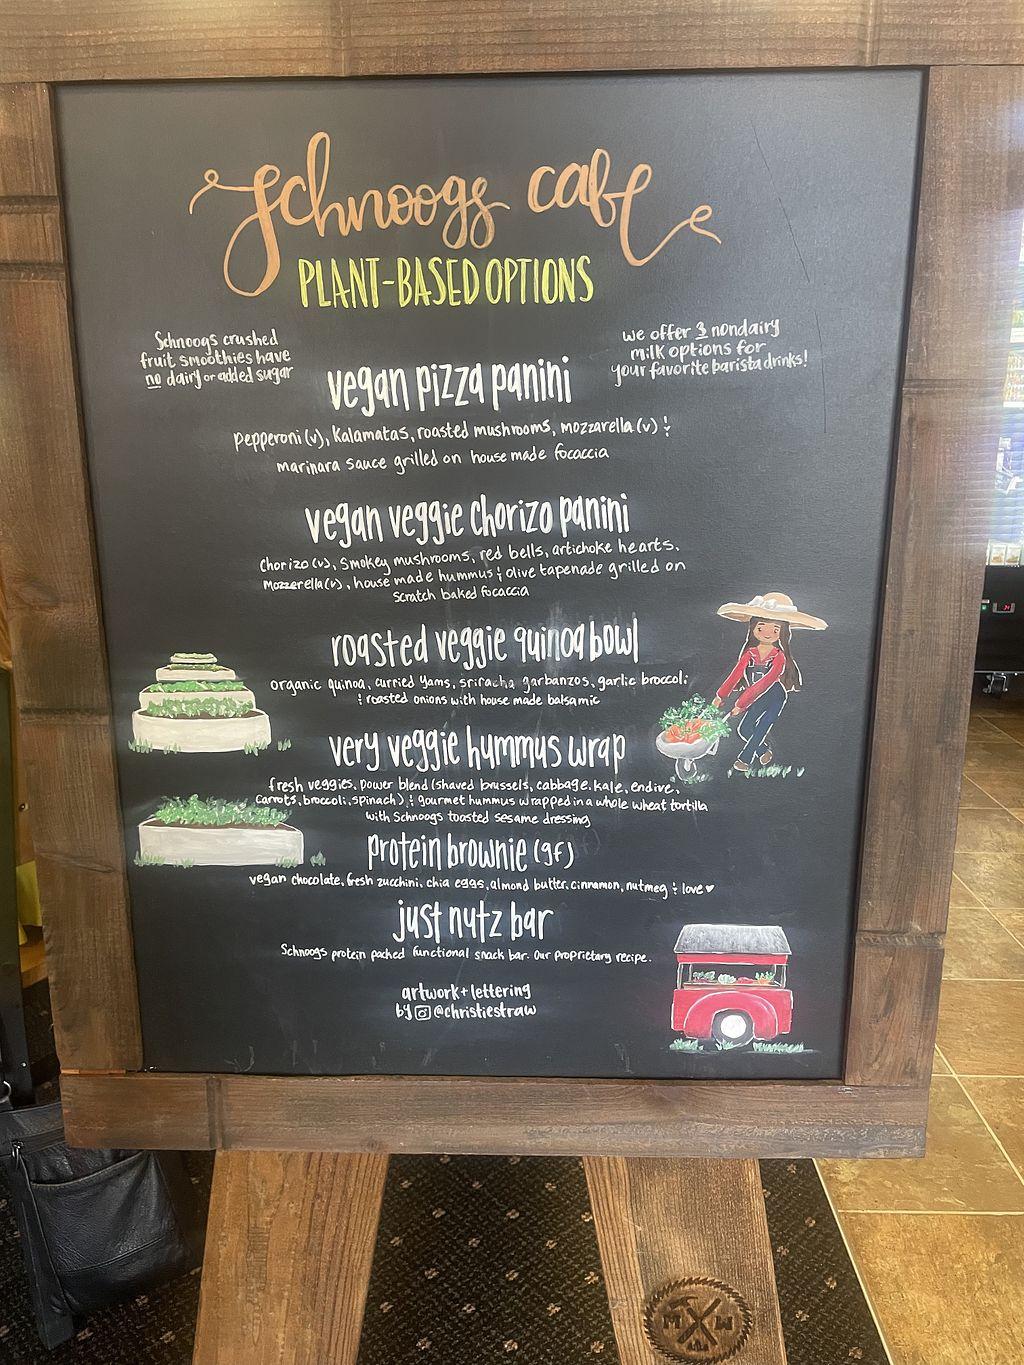 Schnoogs cafe
PLANT-BASED OPTIONS
Schnoogs crushed
fruit smoothies have
no dairy or added sugar
we offer 3 nondairy
milk options for
your favorite barista drinks!
vegan pizza panini
pepperoni (v), Kalamatas, roasted mushrooms, mozzarella (v) &
marinara sauce grilled on house made focaccia
vegan veggie chorizo panini
Chorizo (v), smokey mushrooms, red bells, artichoke hearts,
mozzerella (v), house made hummus & olive tapenade grilled on
scratch baked focaccia
roasted veggie quinoa bowl
organic quinoa, curried yams, sriracha garbanzos, garlic broccoli
& roasted onions with house made balsamic
very veggie hummus wrap
fresh veggies, power blend (shaved brussels, cabbage, kale, endive,
carrots, broccoli, spinach), & gourmet hummus wrapped in a whole wheat tortilla
with Schnoogs toasted sesame dressing
protein brownie (gf)
vegan chocolate, fresh zucchini, chia eggs, almond butter, cinnamon, nutmeg & love ♥
just nutz bar
Schnoogs protein packed functional snack bar. Our proprietary recipe.
artwork + lettering
by @christiestraw
M W